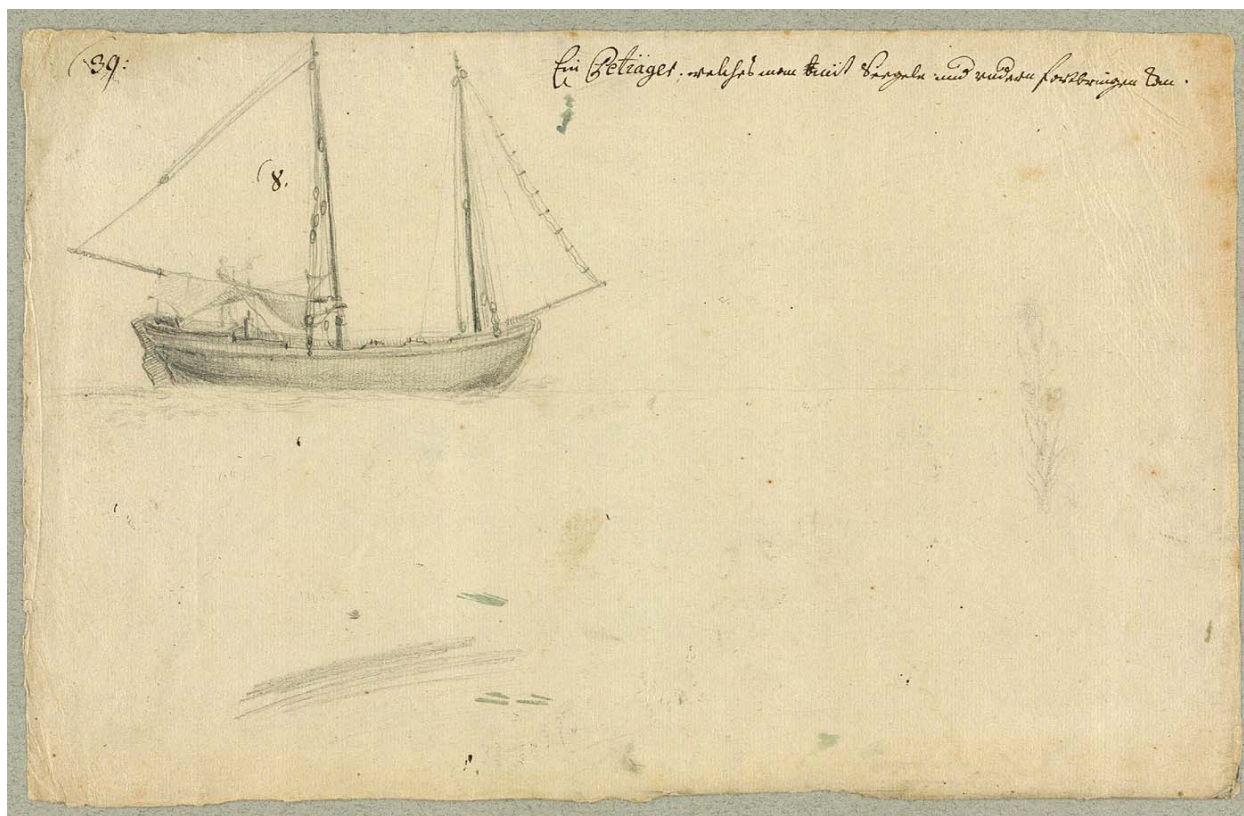 (39:
Ein Petiager. welches man mit Seegeln und rudern fortbringen kan.
(8.